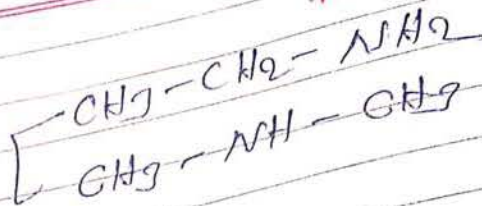 CH3-CH2-NH2
CH3-NH-CH3